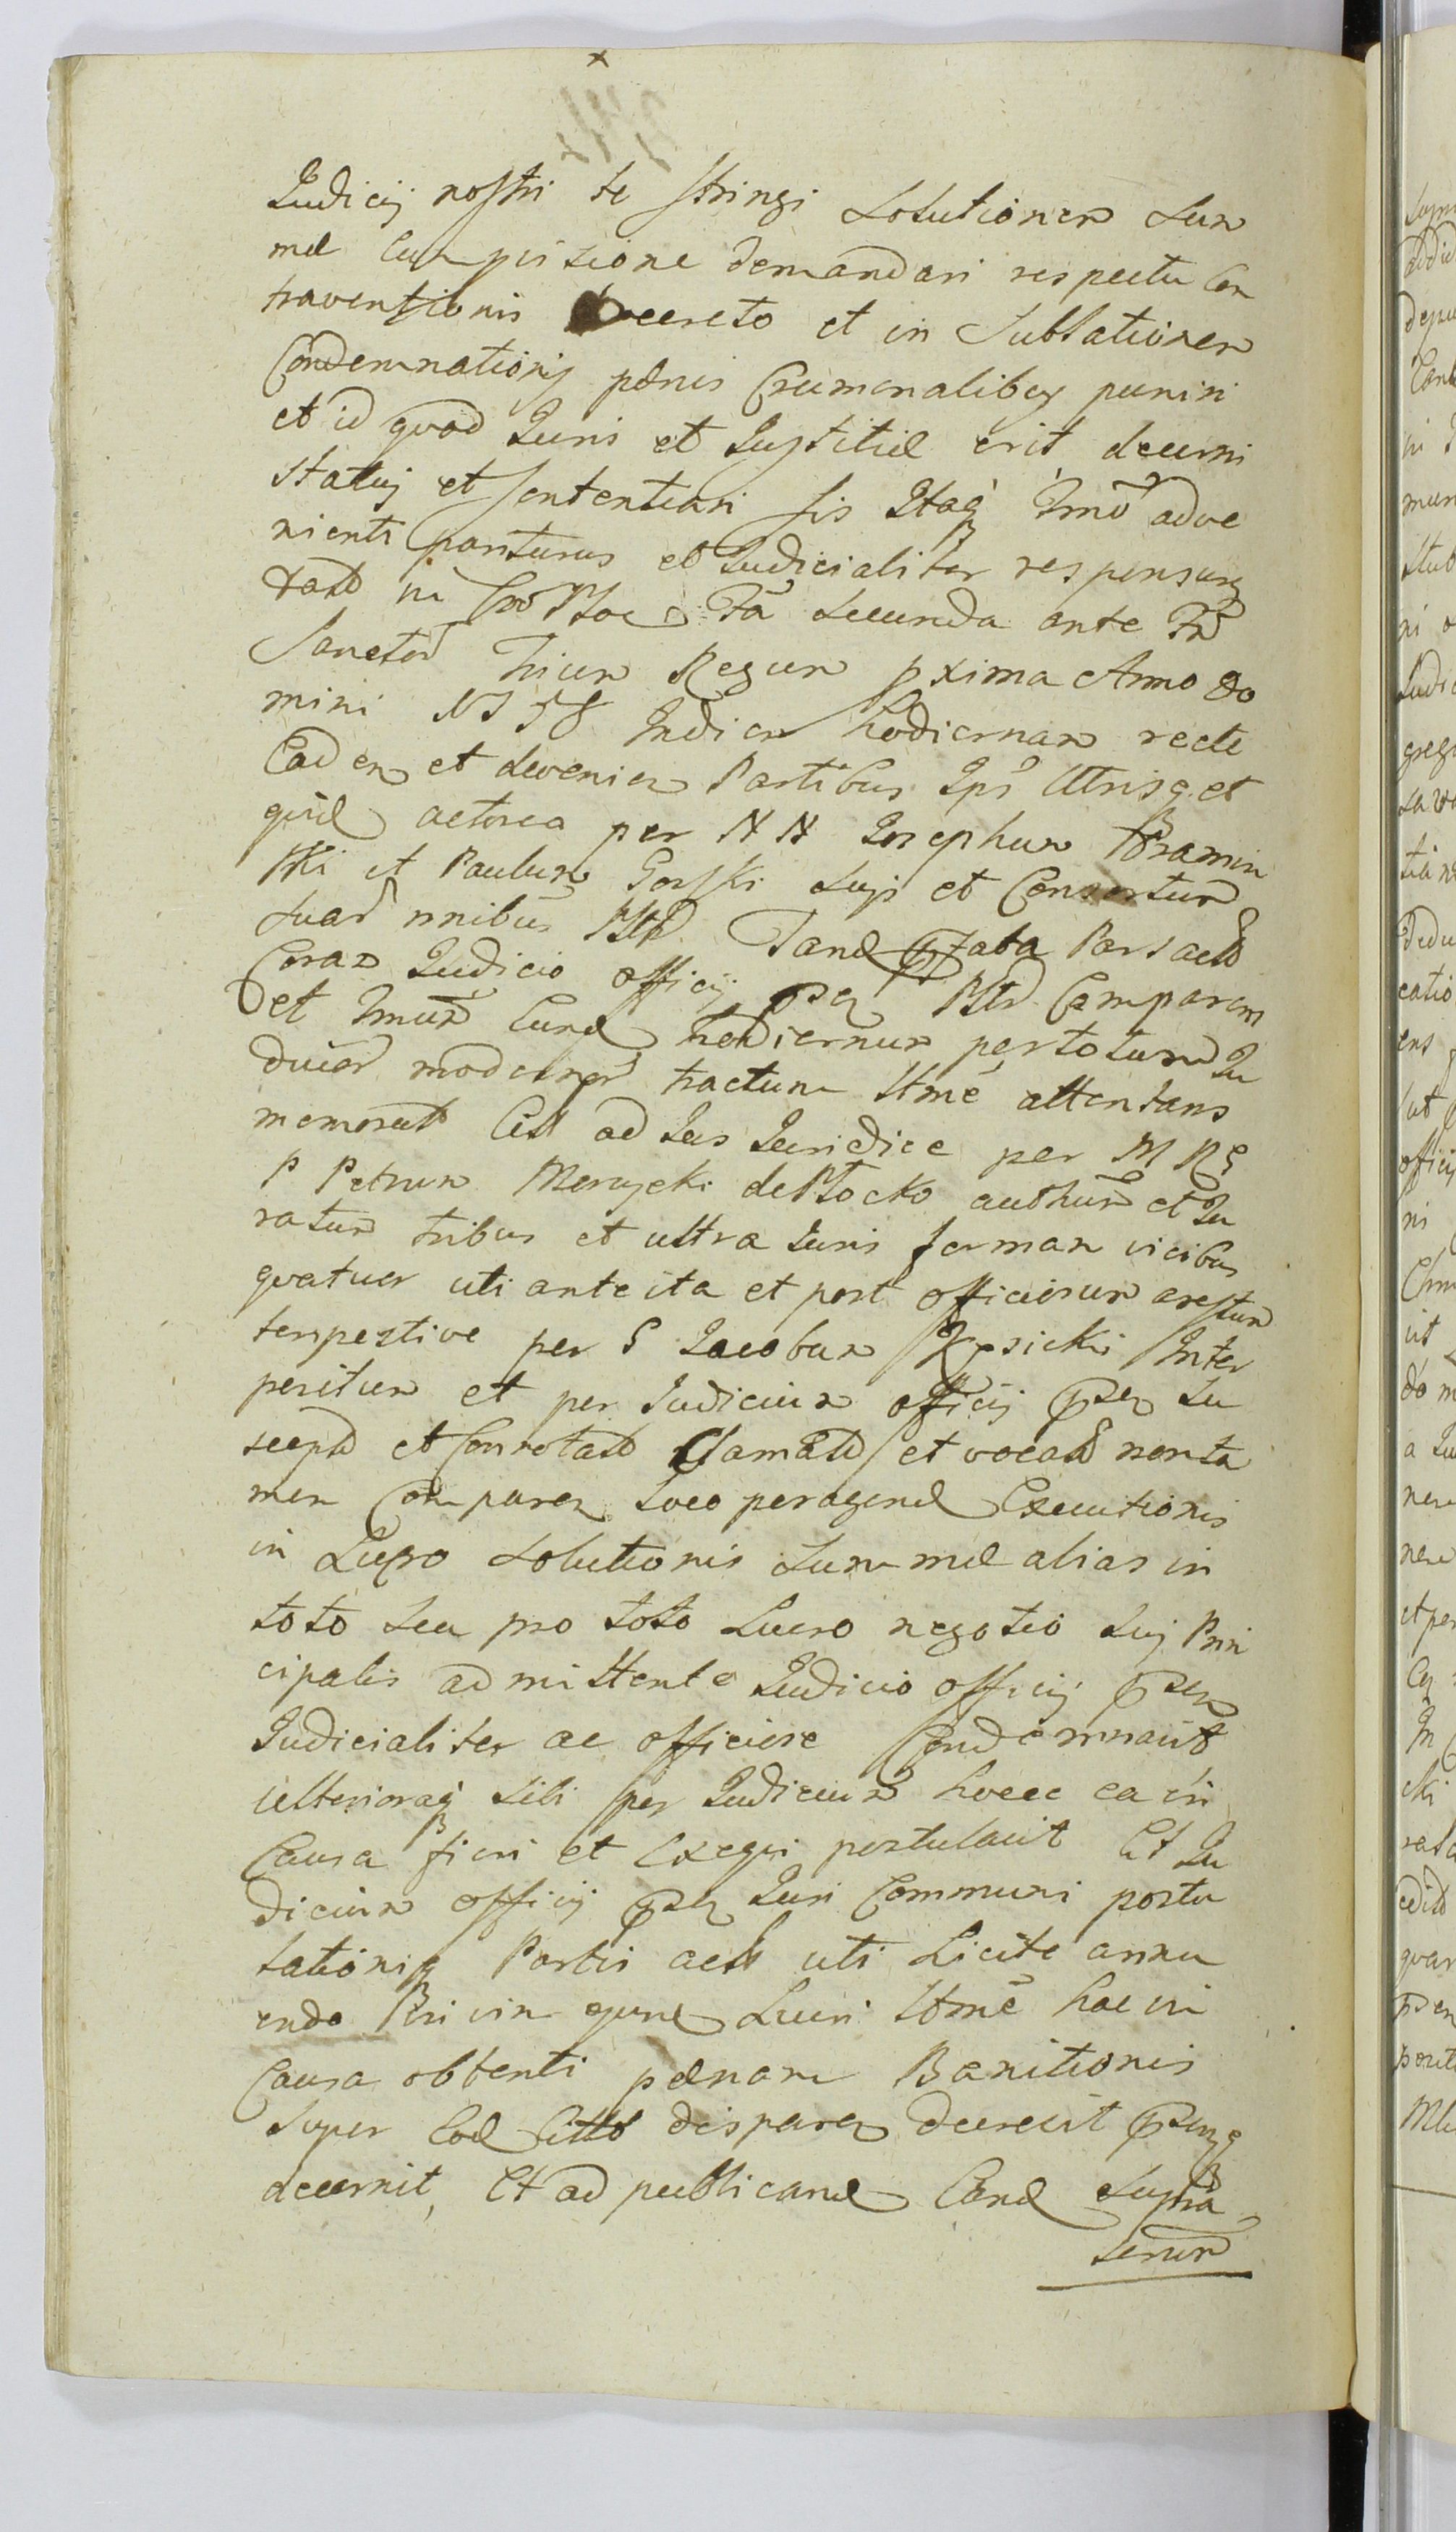 Judicij nostri te stringi Solutionem Sum
mæ cum pisizione demandari respectu Con
traventionis Decreto et in Sublationem
Condemnationis pænis Criminalibus puniri
et id quod Juris et Justitiæ erit decerni
Statui et sententiari sis Itaq Tmō adve
nienti pariturus et Judicialiter responsurus
Dat in Cro Ploc Fa Secunda ante Fm
Sanctor Trium Regum pxima Anno Do
mini 1758 In diem hodiernam recte
Caden et devenien Partibus Ipō Utrisq et
quid actorea per NN Josephum Bramin
ski et Paulum Gorski Suis et Consortum
Suar nnibus Pltd Tand ptata Pars act
Coram Judicio officij psen Pltd Comparens
et Tmum Eund hodiernum per totum Ju
dicior modernor tractum Ltmē attentans
memorat Citt ad Jus Juridice per M RG
P Petrum Meruycki de Plocko authum et Ju
ratum tribus et ultra Juris formam vicibus
quatuor uti ante ita et post officiosum arestum
tempestive per G Jacobum Kosicki Inter
peritum et per Judicium officij psen Su
scept et Connotat Clamat et vocat non ta
men Comparen Loco peragend Executionis
in Lucro Solutionis Summæ alias in
toto seu pro toto Lucro negotio Sui Prin
cipalis admittente Judicio officij psen
Judicialiter ac officiose Condemnavit
ulterioraq sibi per Judicium hocce ea in
Causa fieri et exequi postulavit Et Ju
dicium officij psen Juri Communi postu
lationiq Partis act uti Licite annu
endo Privim Lucri Ltmē hac in
Causa obtenti pænam Banitionis
Super Eod Citto disparen decrevit psensq
decernit, Et ad publicand Eand Supra
scrum